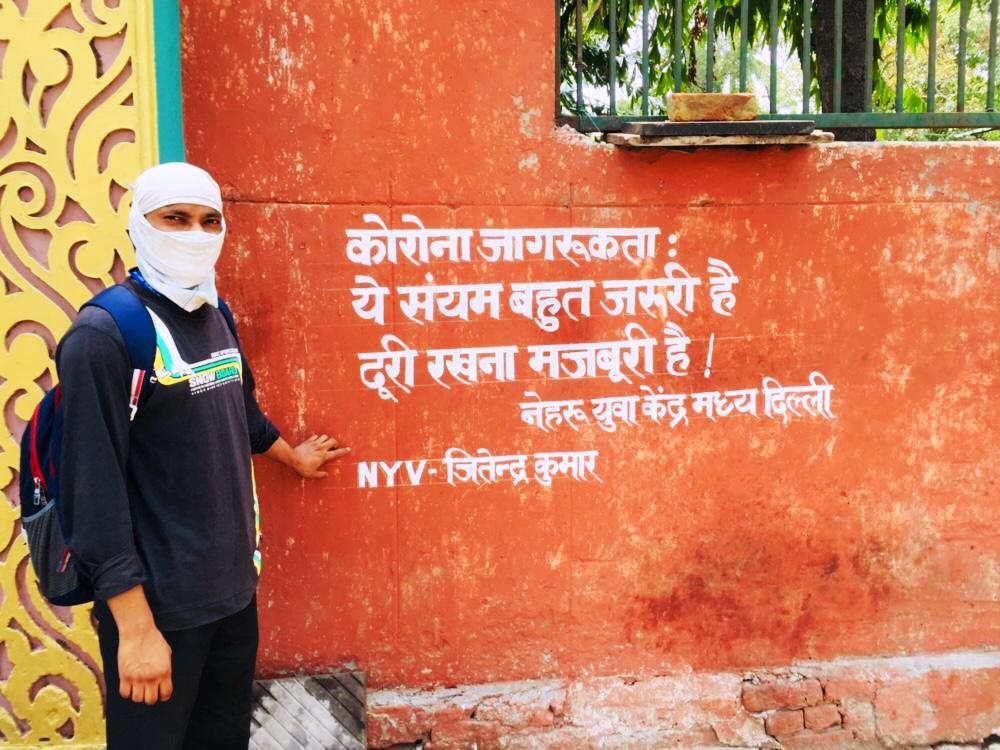 कोरोना जागरूकता :
ये संयम बहुत जरुरी है
दूरी रखना मजबूरी है !
नेहरू युवा केंद्र मध्य दिल्ली
NYV- जितेन्द्र कुमार
SNOW BOARD